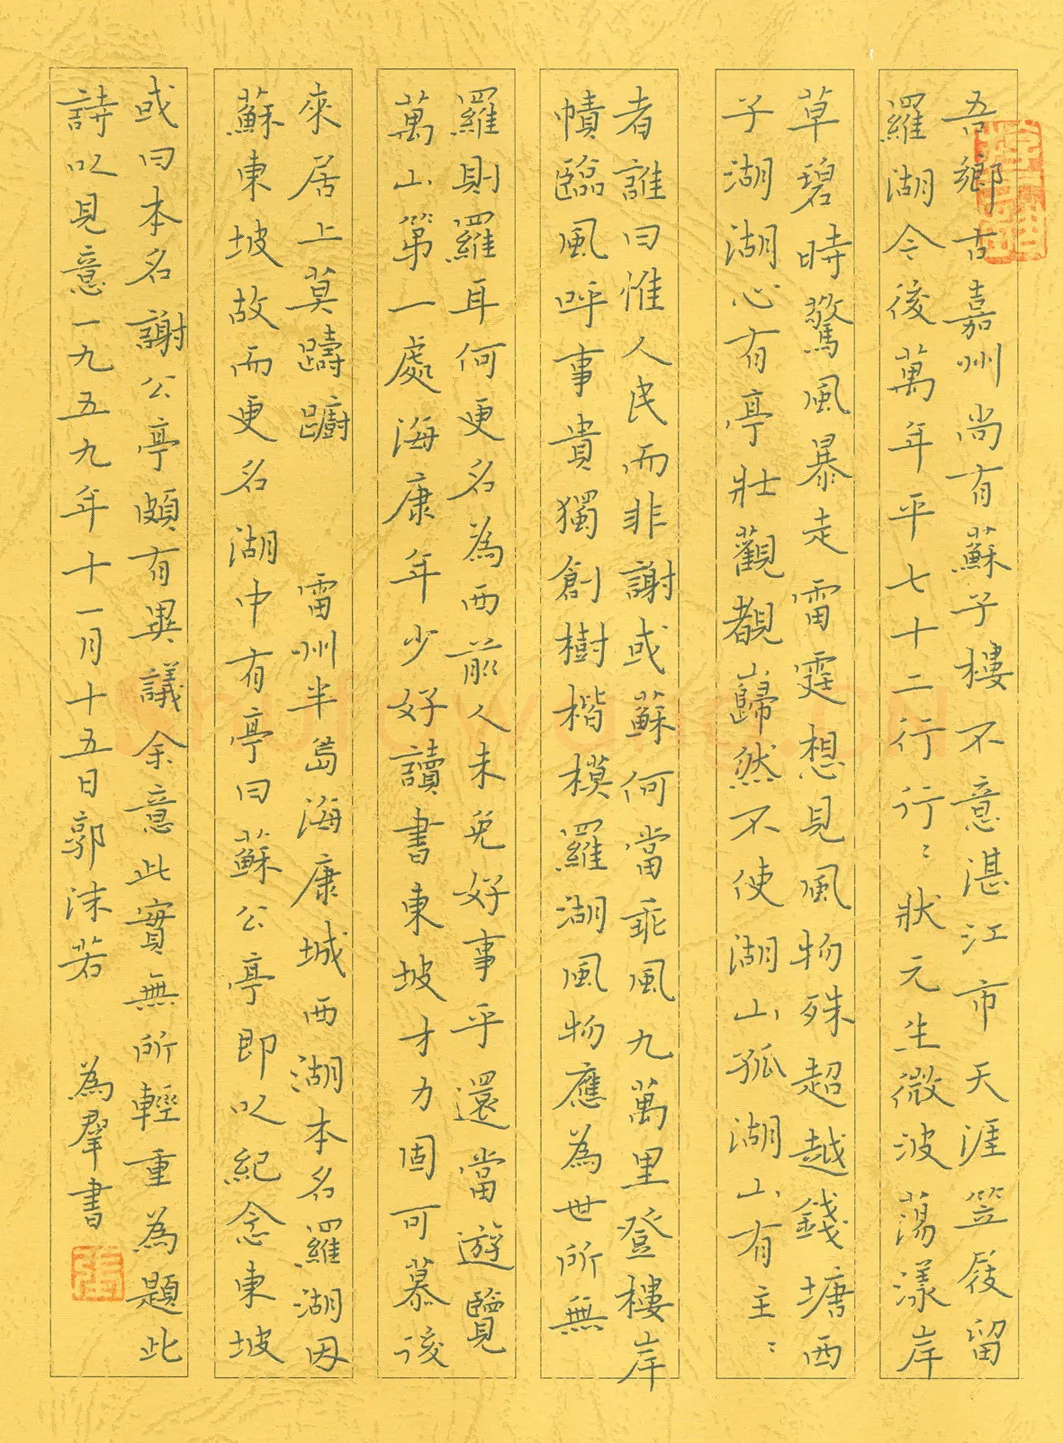 吾鄉古嘉州尚有蘇子樓不意湛江市天涯笠屐留
羅湖今後萬年平七十二行行〻狀元生微波蕩漾岸
草碧時驚風暴走雷霆想見風物殊超越錢塘西
子湖湖心有亭壯觀覩巋然不使湖山孤湖山有主〻
者誰曰惟人民而非謝或蘇何當乖風九萬里登樓岸
幘臨風呼事貴獨創樹楷模羅湖風物應為世所無
羅則羅耳何更名為西前人未免好事乎還當遊覽
萬山第一處海康年少好讀書東坡才力固可慕後
來居上莫躊躕 雷州半島海康城西湖本名羅湖因
蘇東坡故而更名湖中有亭曰蘇公亭即以紀念東坡
或曰本名謝公亭頗有異議余意此實無所輕重為題此
詩以見意一九五九年十一月十五日郭沫若 為羣書